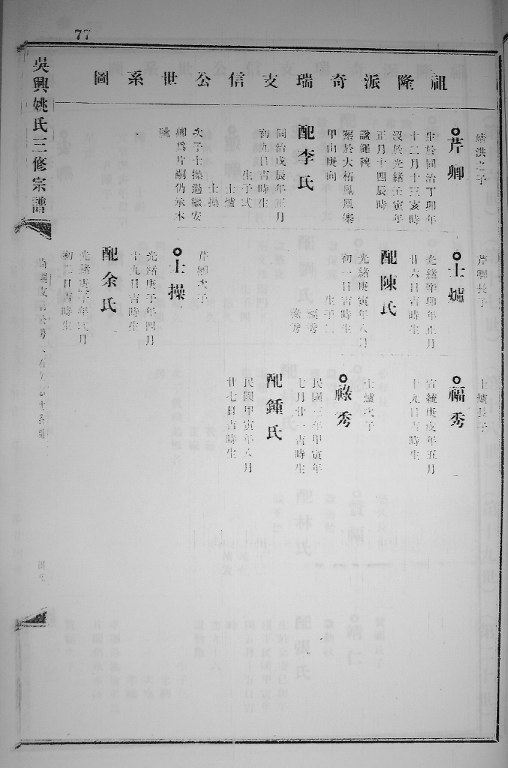 77
祖隆派奇瑞支信公世系圖
吳興姚氏三修宗譜
芹卿
生於同治丁卯年
十二月十三亥時
歿於光緒壬寅年
正月十四辰時
甲山庚向
配李氏
同治戊辰年正月
初九日吉時生
生子弍
士爐
士操
次子士操過繼安
卿爲嗣仍承本
芹卿長子
士爐
光緒辛卯年正月
廿六日吉時生
配陳氏
光緒庚寅年八月
初一日吉時生
生子二
福秀
祿秀
芹卿次子
士操
光緒庚子年四月
十九日吉時生
配余氏
光緒庚子年
初二日吉時生
士爐長子
福秀
宣統庚戌年五月
十九日吉時生
士爐次子
祿秀
民國三年甲寅年
七月廿一吉時生
配鍾氏
民國甲寅年八月
廿七日吉時生